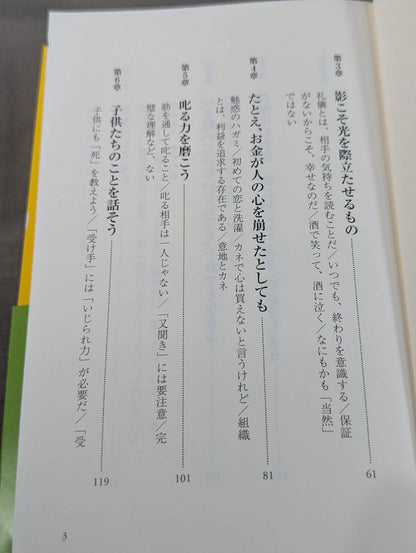 第3章 影こそ光を際立たせるもの 61
礼儀とは、相手の気持ちを読むことだ/いつでも、終わりを意識する/保証
がないからこそ、幸せなのだ/酒で笑って、酒に泣く/なにもかも「当然」
ではない
第4章 たとえ、お金が人の心を崩せたとしても 81
魅惑のハガミ/初めての恋と洗濯/カネで心は買えないと言うけれど/組織
とは、利益を追求する存在である/意地とカネ
第5章 叱る力を磨こう 101
筋を通して叱ること/叱る相手は一人じゃない/「又聞き」には要注意/完
璧な理解など、ない
第6章 子供たちのことを話そう 119
子供にも「死」を教えよう/「受け手」には「いじられ力」が必要だ/「受
3